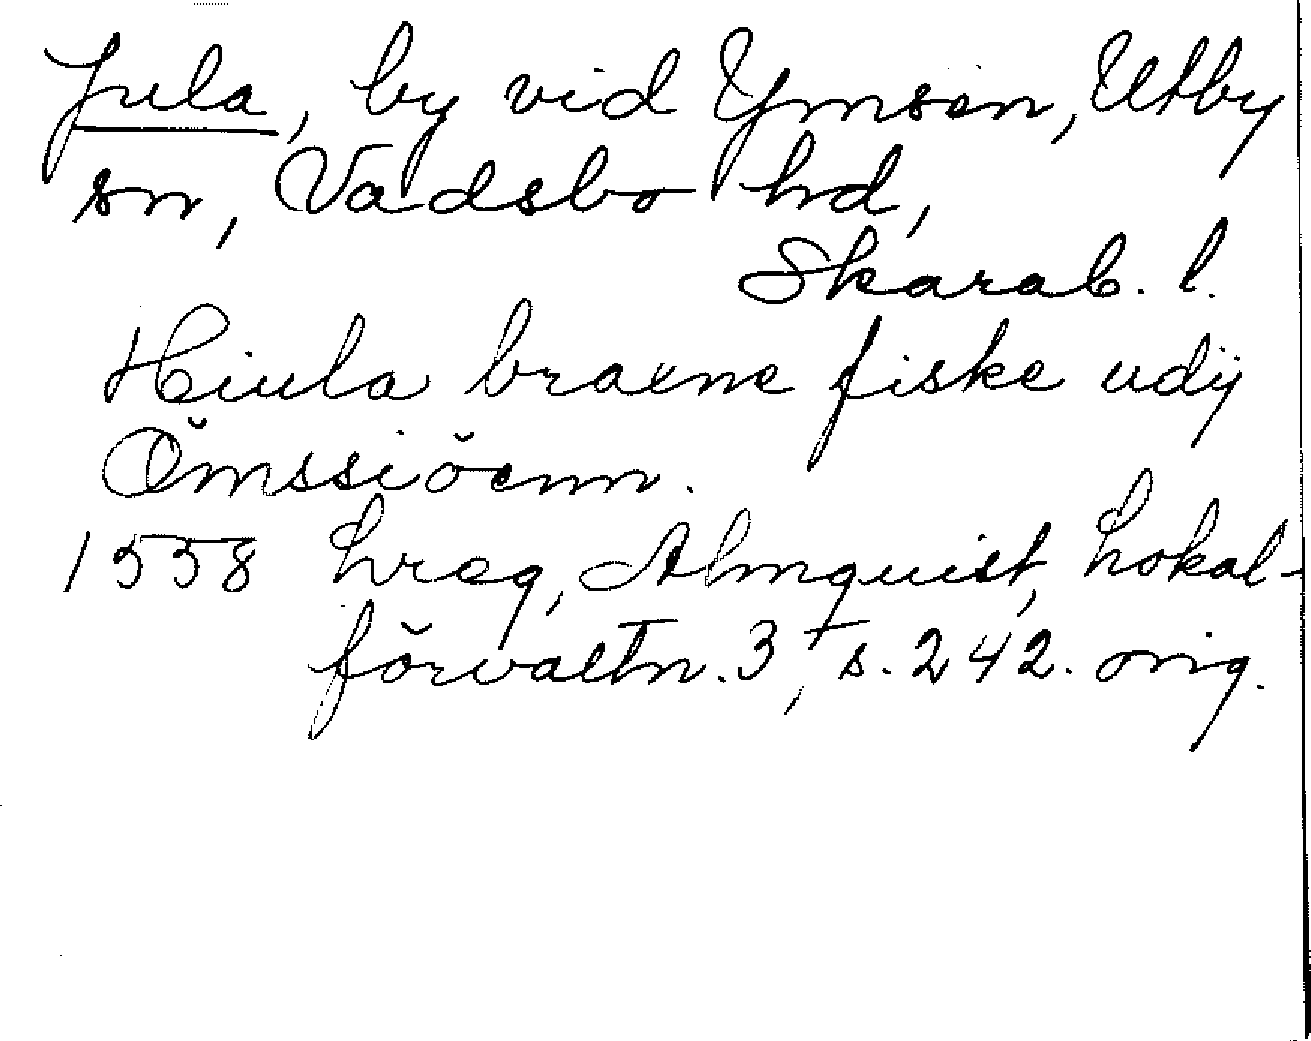 Jula, by vid Ymsen, Utby
sn, Vadsbo hd,
Skarab. l.
Hiula braene fiske udij
Ömssiöenn.
1558 hreg, Almquist, Lokal-
förvaltn. 3, s. 242. orig.